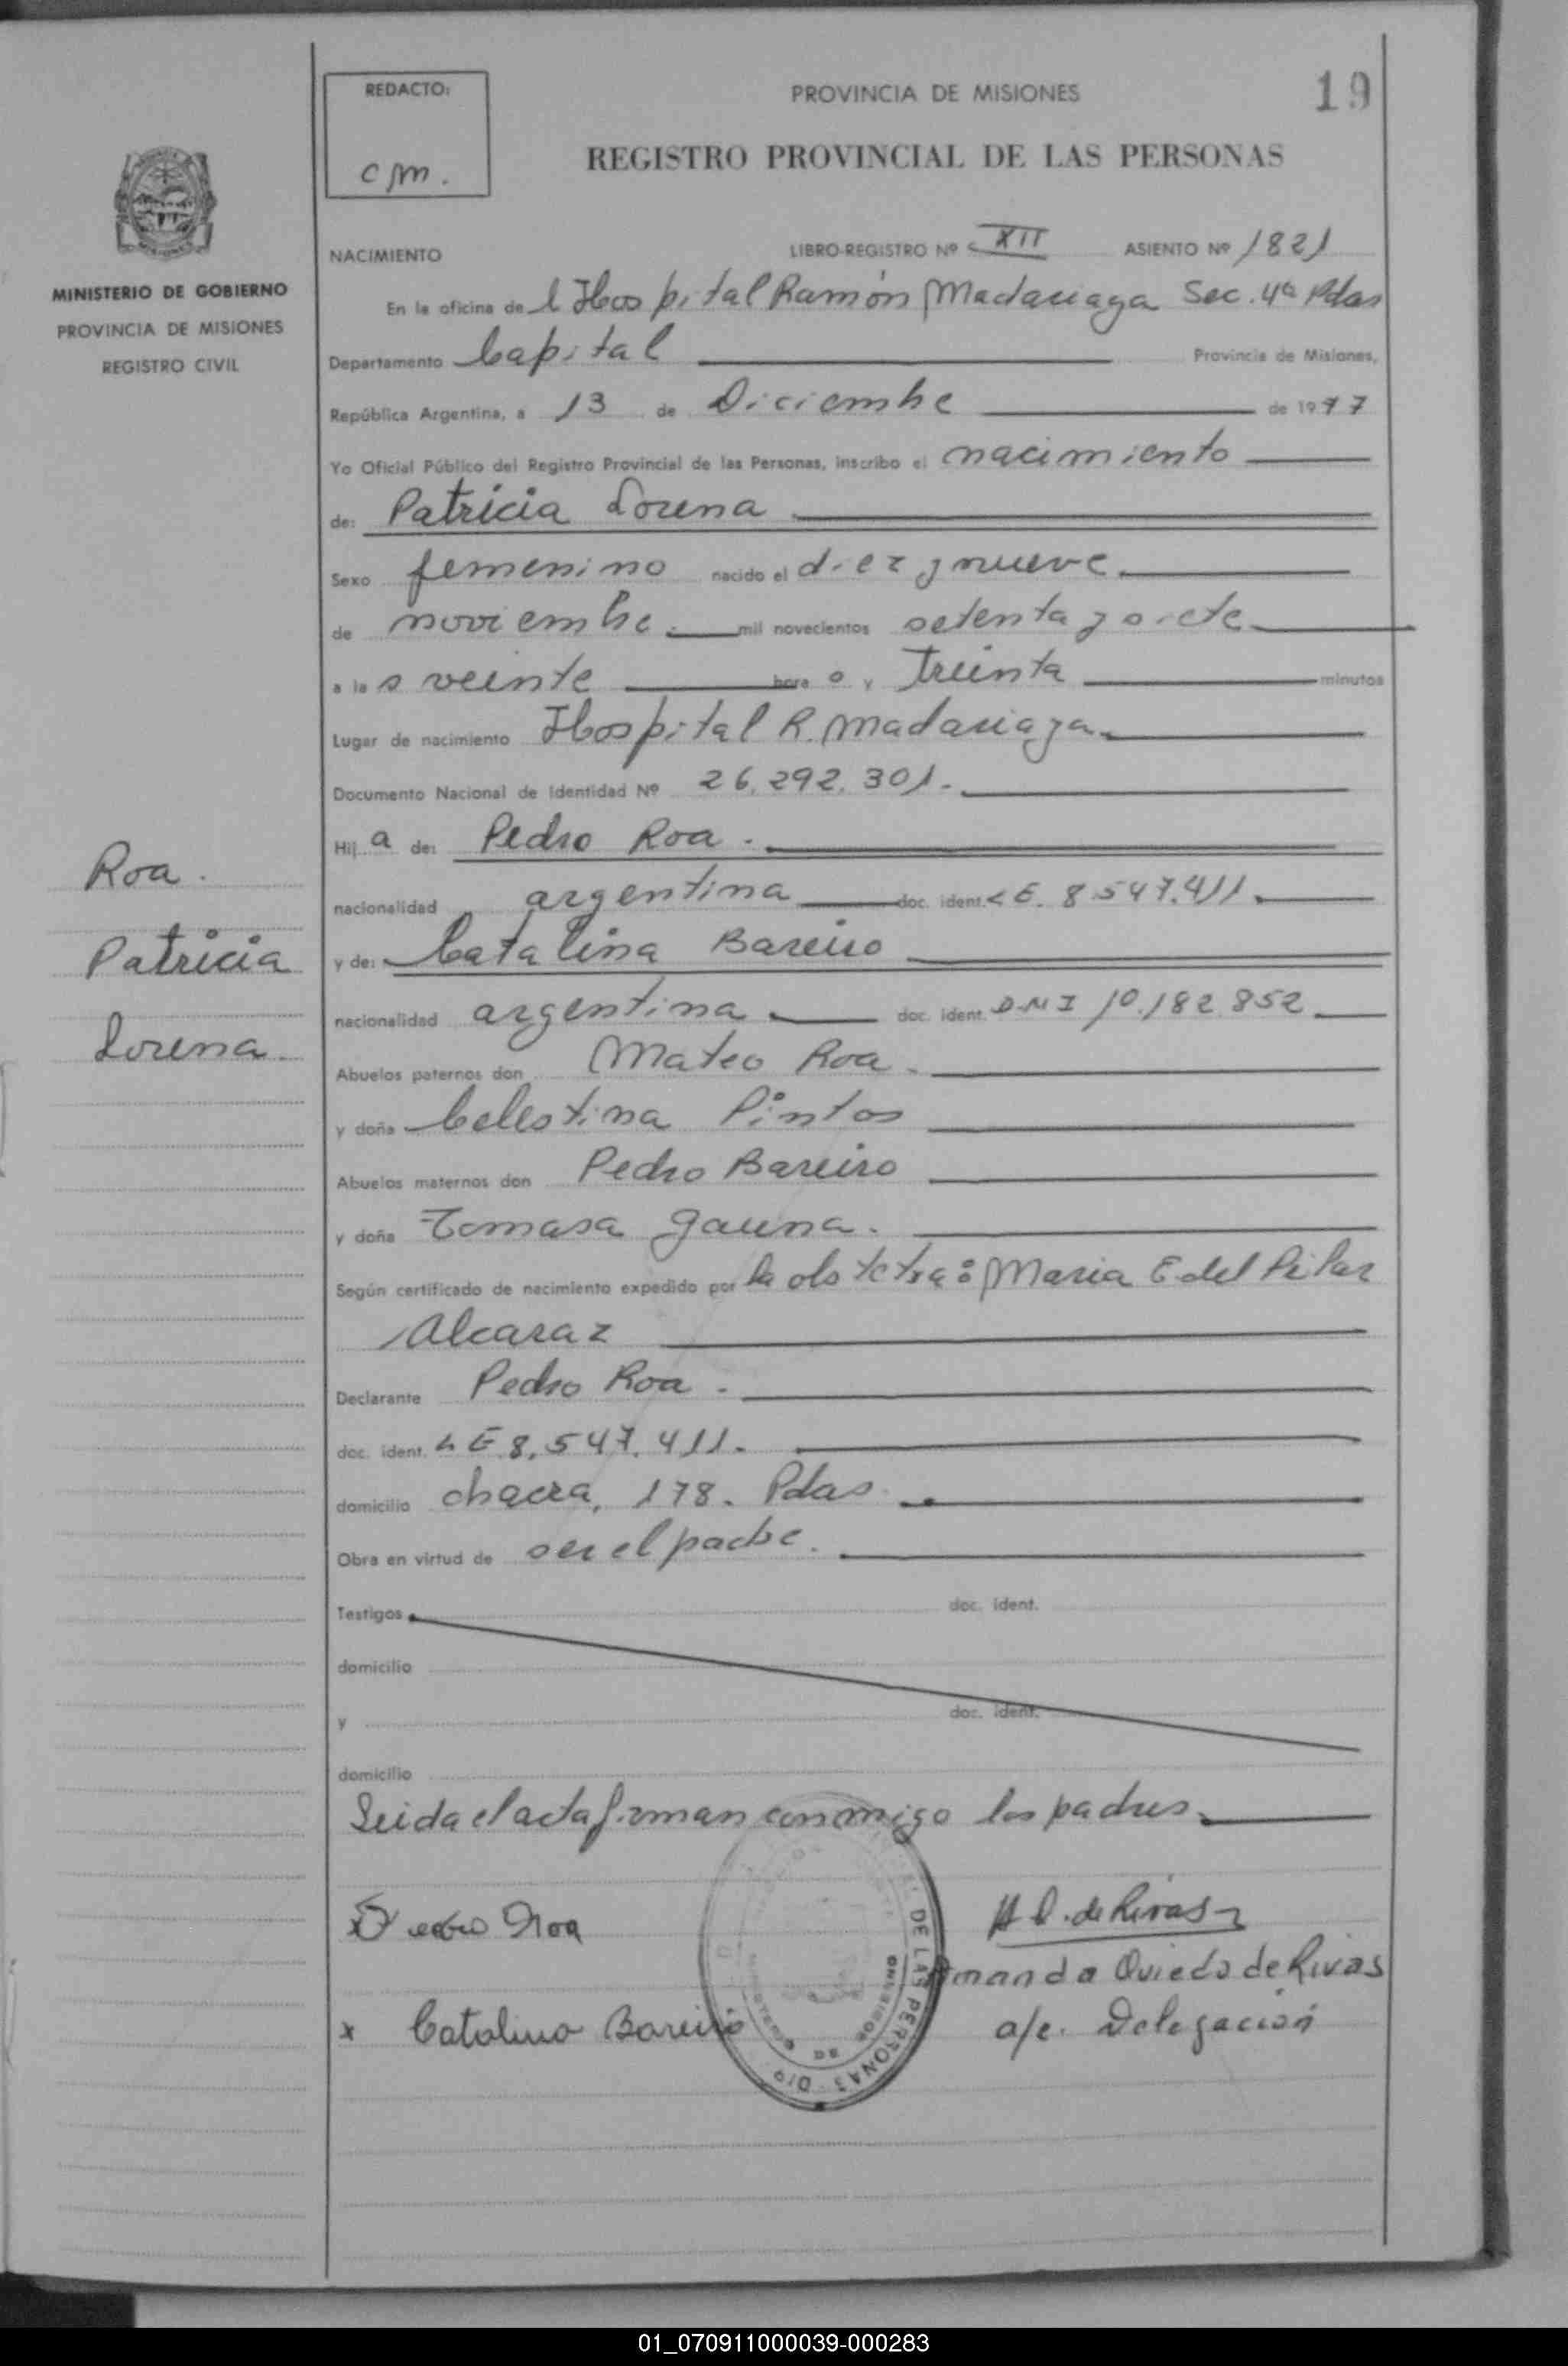 REDACTO:
cm.
PROVINCIA DE MISIONES
19
REGISTRO PROVINCIAL DE LAS PERSONAS
MINISTERIO DE GOBIERNO
PROVINCIA DE MISIONES
REGISTRO CIVIL
NACIMIENTO LIBRO-REGISTRO Nº XII ASIENTO Nº 1821
En la oficina de l Hospital Ramón Madariaga Sec. 4ª Pdas
Departamento Capital Provincia de Misiones,
República Argentina, a 13 de Diciembre de 1977
Yo Oficial Público del Registro Provincial de las Personas, inscribo el nacimiento
de: Patricia Lorena
Sexo femenino nacido el diez y nueve
de noviembre. mil novecientos setenta y siete
a las veinte hora o y treinta minutos
Lugar de nacimiento Hospital R. Madariaga.
Documento Nacional de Identidad Nº 26.292.301.
Hij a de: Pedro Roa.
nacionalidad argentina doc. ident. LE. 8.547.411.
y de: Catalina Bareiro
nacionalidad argentina doc. ident. D.N.I 10.182.852
Abuelos paternos don Mateo Roa.
y doña Celestina Pintos
Abuelos maternos don Pedro Bareiro
y doña Tomasa Gauna.
Según certificado de nacimiento expedido por la obstetra: Maria E del Pilar
Alcaraz
Declarante Pedro Roa.
doc. ident. LE 8.547.411.
domicilio chacra, 178. Pdas.
Obra en virtud de ser el padre.
Testigos doc. ident.
domicilio
y doc. ident.
domicilio
Leida el acta firman conmigo los padres
Roa.
Patricia
Lorena.
x Pedro Roa
x Catalina Bareiro
DE LAS PERSONAS
A O. de Rivas
Amanda Oviedo de Rivas
a/c. Delegación
01_070911000039-000283